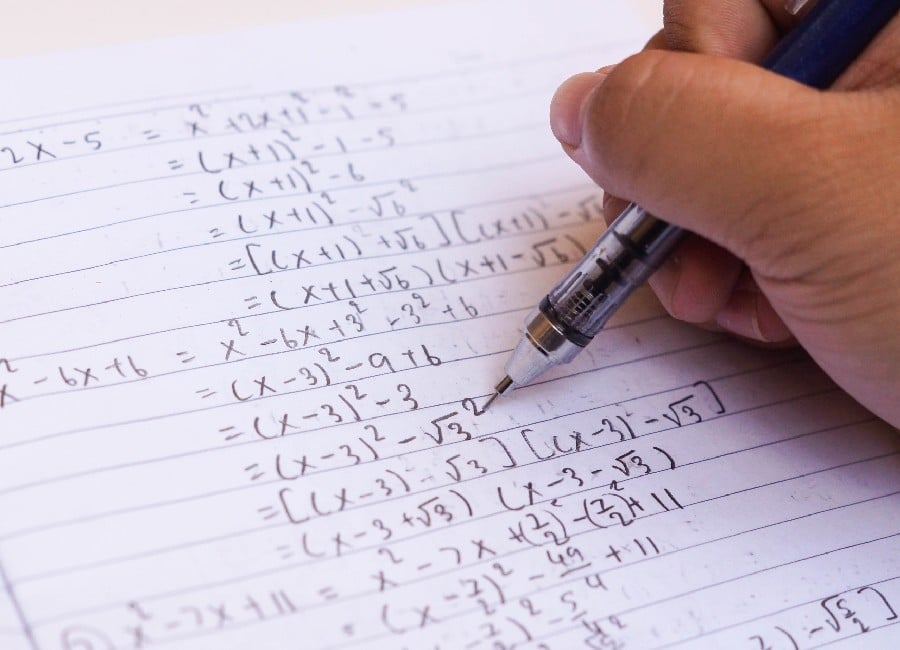 2x-5 = x²+2x+1²-1²-5
= (x+1)²-1-5
= (x+1)²-6
= (x+1)²-√6²
=[(x+1)+√6][(x+1)-√6
=(x+1+√6)(x+1-√6)
x²-6x+6 = x²-6x+3²-3²+6
= (x-3)²-9+6
= (x-3)²-3
= (x-3)²-√3²
=[(x-3)-√3][(x-3)-√3]
=(x-3+√3)(x-3-√3)
x²-7x+11 = x²-7x+(7/2)²-(7/2)²+11
(x-7/2)²-49/4+11
7/2)²-5/4
)-√5/2]